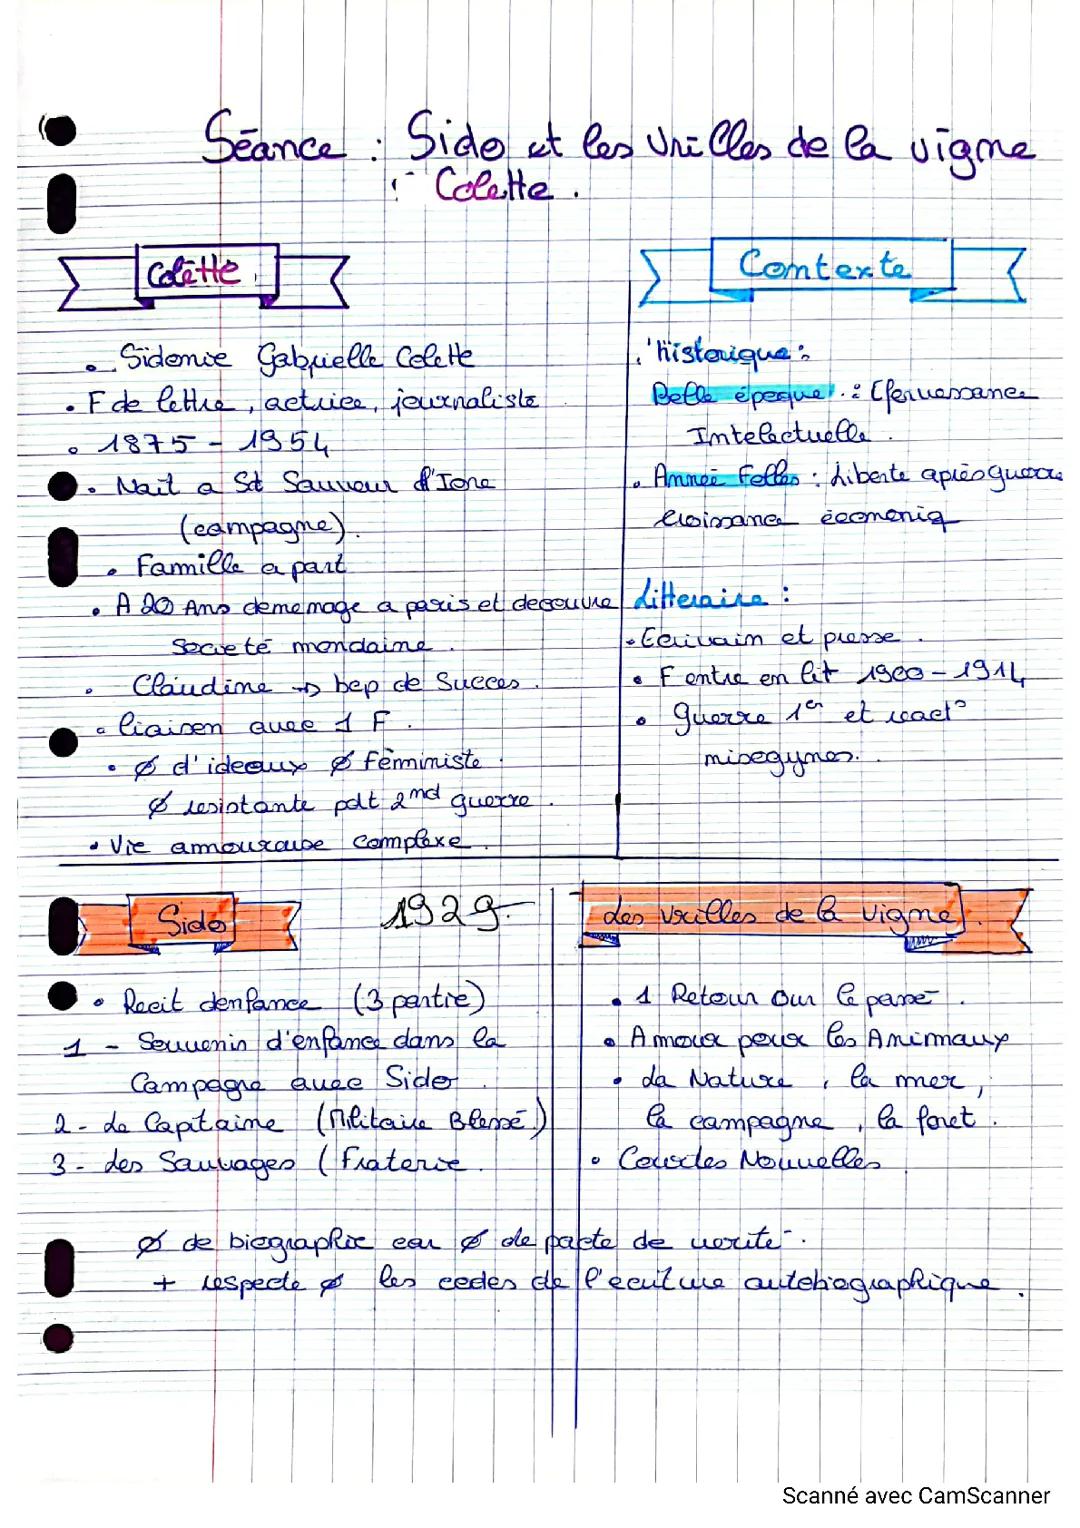 Séance : Sido et les Vrilles de la vigne
: Colette.
Colette.
• Sidonie Gabrielle Colette
• F de lettre, actrice, journaliste
• 1875 - 1954
• Nait a St Sauveur d'Ione
(campagne).
• Famille a part
• A 20 Ans demenage a paris et decouvre
societé mondaine.
• Claudine → bep de Succes.
• liaison avec 1 F.
• Ø d'ideaux Ø Féministe
Ø resistante pdt 2nd guerre.
• Vie amoureuse complexe.
Contexte
• historique :
Belle époque : Efervessance
Intelectuelle.
• Année Folles : Liberte après guerre
croissance économiq
Litteraire :
• Ecrivain et presse.
• F entre en lit 1900 - 1914
• guerre 1er et react°
misogynes.
Sido 1929.
• Recit denfance (3 partie)
1 - Souvenir d'enfance dans la
Campagne avec Sido.
2 - Le Capitaine (Militaire Blessé)
3 - Les Sauvages (Fraterie.
Les vrilles de la vigne.
• 1 Retour sur le passé.
• Amour pour les Animaux
• La Nature, la mer,
la campagne, la foret.
• Courtes Nouvelles
Ø de biographie car Ø de pacte de verité.
+ respecte Ø les codes de l'ecriture autobiographique.
Scanné avec CamScanner